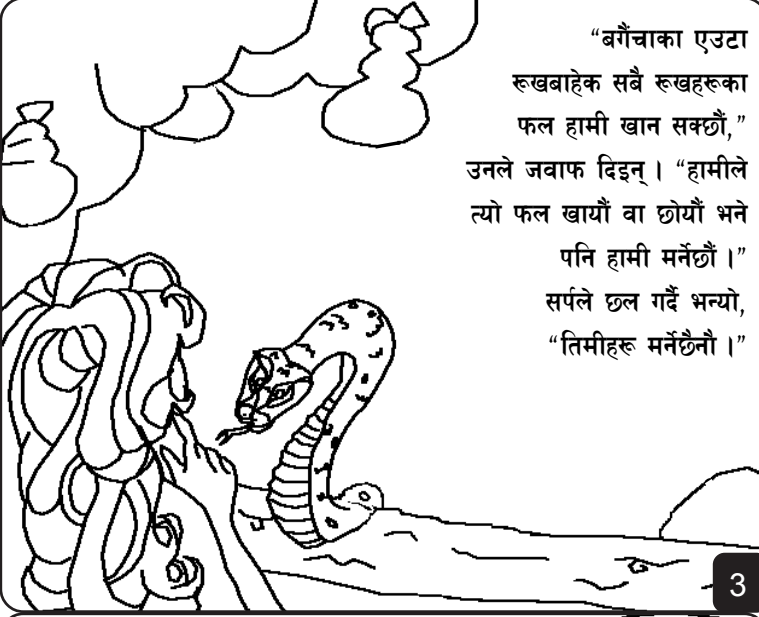 “बगैंचाका एउटा
रूखबाहेक सबै रूखहरूका
फल हामी खान सक्छौं,”
उनले जवाफ दिइन् । “हामीले
त्यो फल खायौं वा छोयौं भने
पनि हामी मर्नेछौं ।”
सर्पले छल गर्दै भन्यो,
“तिमीहरू मर्नेछैनौ ।”
3